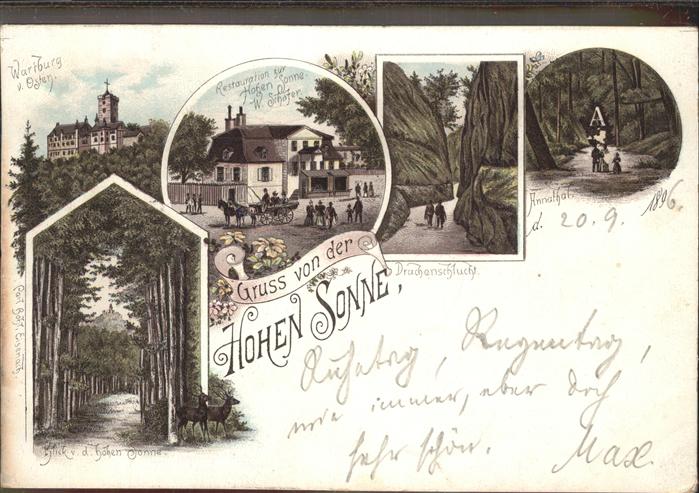 Wartburg
v. Osten.
Restauration zur
Hohen Sonne
W. Schäfer.
A
Annathal.
d. 20. 9. 1896.
Drachenschlucht
Gruss von der
HOHEN SONNE,
Ruhetag, Regentag,
wie immer, aber doch
sehr schön.
Max.
Blick v. d. hohen Sonne.
Eisenach.